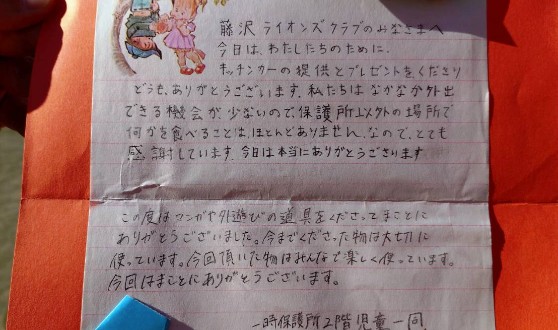 藤沢ライオンズクラブのみなさまへ
今日は、わたしたちのために、
キッチンカーの提供とプレゼントをくださり
どうも、ありがとうございます。私たちは なかなか外出
できる機会が少ないので、保護所以外の場所で
何かを食べることは、ほとんどありません。なので、とても
感謝しています。今日は本当にありがとうございます
この度はマンガや外遊びの道具をくださってまことに
ありがとうございました。今までくださった物は大切に
使っています。今回頂いた物はみんなで楽しく使っています。
今回はまことにありがとうございます。
一時保護所2階児童一同